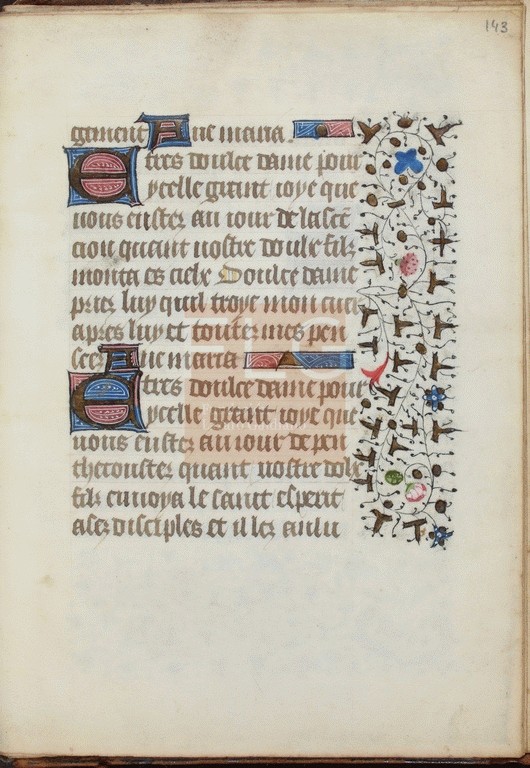 143
gement Aue maria.
E tres doulce dame pour
ycelle grant ioye que
uous eustez au iour de lascē
cion quant nostre doulz filz
monta es cielx Doulce dame
priez luy quil troye mon cuer
apres luy et toutez mes pen
seez Aue maria
E tres doulce dame pour
ycelle grant ioye que
uous eustez au iour de pen
thecouste quant nostre
filz enuoya le saint esperit
a sez disciples et il lez